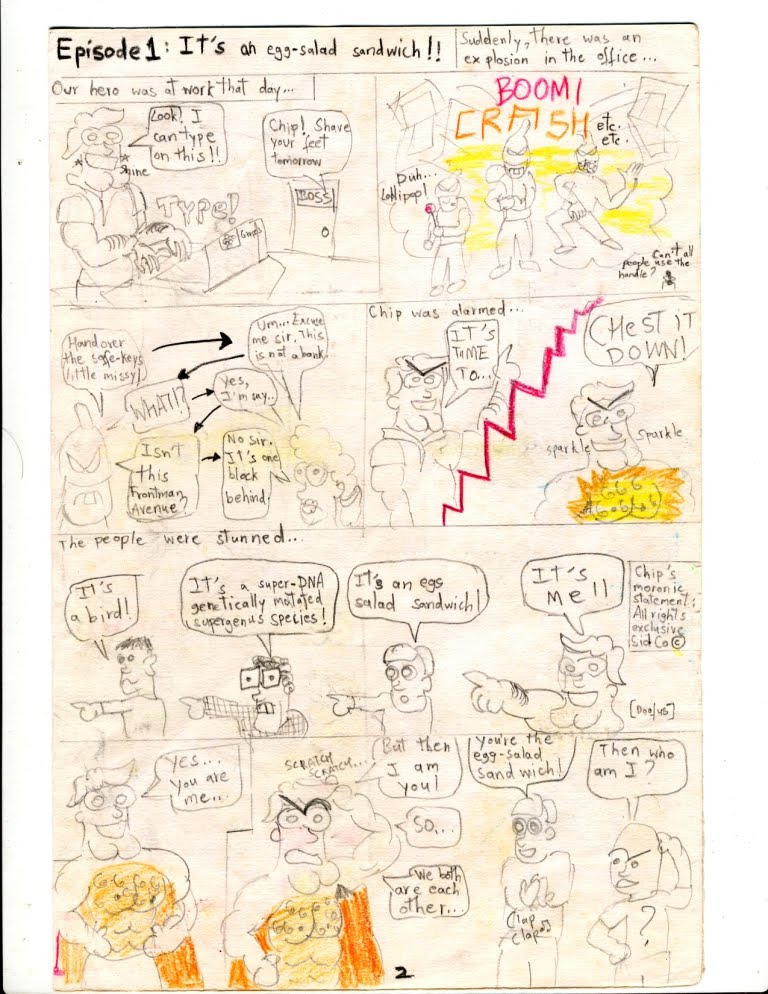 Episode 1: It's an egg-salad sandwich!!
Our hero was at work that day...
Look! I
can type
on this!!
Shine
TYPE!
Chip! Shave
your feet
tomorrow
BOSS
Suddenly, there was an
explosion in the office...
BOOM!
CRASH
etc.
etc.
Duh...
Lollipop!
Can't all
people use the
handle?
Hand over
the safe-keys
little missy!
Um... Excuse
me sir. This
is not a bank.
WHAT!?
Yes,
I'm say..
Isn't
this
Frontman
Avenue?
No sir.
It's one
block
behind.
Chip was alarmed...
IT'S
TIME
TO...
CHEST IT
DOWN!
sparkle
sparkle
The people were stunned...
It's
a bird!
It's a super-DNA
genetically mutated
supergenus species!
It's an egg
salad sandwich!
It's
Me!!
Chip's
moronic
statement:
All rights
exclusive
Sid Co ©
Yes...
You are
me...
SCRATCH
SCRATCH...
But then
I am
you!
So,...
We both
are each
other...
You're the
egg-salad
sandwich!
Clap
clap
Then who
am I?
?
2